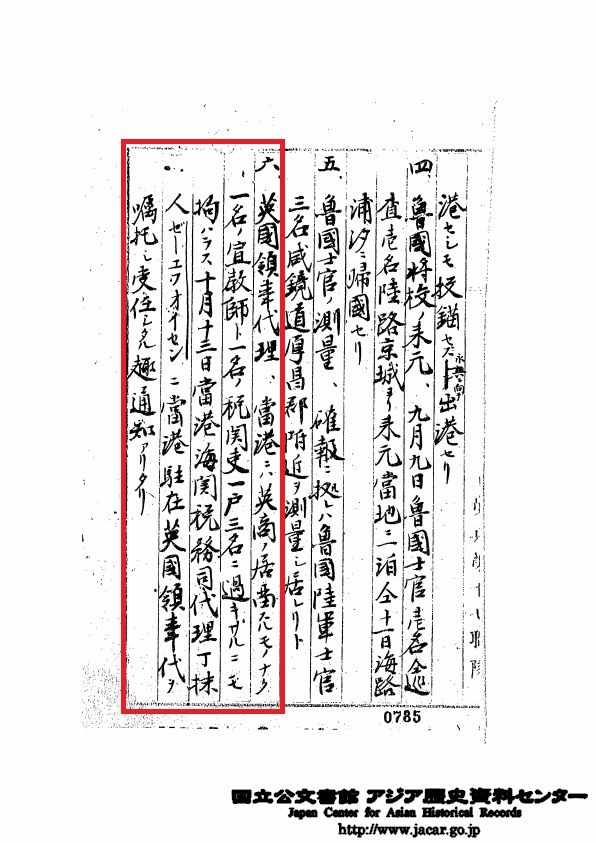 港セシモ投錨セズシテ出港セリ
四、魯國將校ノ来元、九月九日魯國士官壱名仝巡
査壱名陸路京城ヨリ来元當地ニ一泊仝十一日海路
浦汐ニ帰國セリ
五、魯國士官ノ測量、確報ニ拠レハ魯國陸軍士官
三名咸鏡道厚昌郡附近ヲ測量シ居レリト
六、英國領事代理、當港ニハ英商ノ居畄スルモノナク
一名ノ宣教師ト一名ノ税関吏一戸三名ニ過キザルニモ
拘ハラス十月十三日當港海関税務司代理丁抹
人ゼーエフオイセンニ當港駐在英國領事代ヲ
嘱托シ受任シタル趣通知アリタリ
0785
国立公文書館 アジア歴史資料センター
Japan Center for Asian Historical Records
http://www.jacar.go.jp